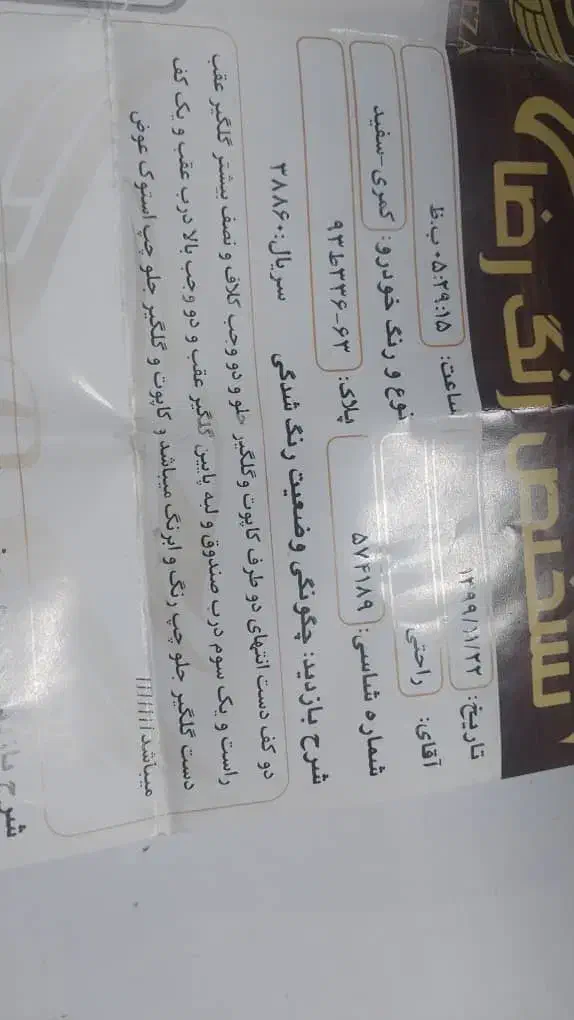 EZA
تشخیص رنگ رضا
تاریخ: ۱۳۹۹/۱۱/۲۲ ساعت: ۰۵:۲۹:۱۵ ب.ظ
آقای: راحتی نوع و رنگ خودرو: کمری-سفید
شماره شاسی: ۵۷۴۱۸۹ پلاک: ۶۳-۳۳۶ط۹۳
شرح بازدید: چگونگی وضعیت رنگ شدگی سریال: ۳۸۸۶۰
دو کف دست انتهای دو طرف کاپوت و گلگیر جلو و دو وجب کلاف و نصف بیشتر گلگیر عقب
راست و یک سوم درب صندوق و لبه پایین گلگیر عقب و دو وجب بالا درب عقب و یک کف
دست گلگیر جلو چپ رنگ و ابرنگ میباشد و کاپوت و گلگیر جلو چپ استوک عوض
میباشد///////
شرح بازد